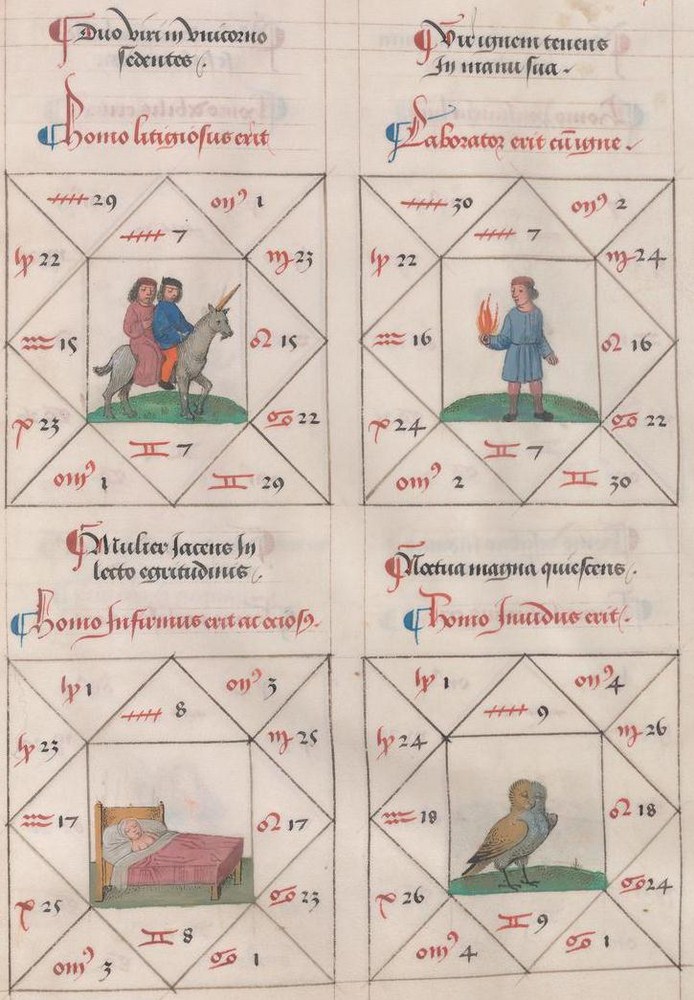 Duo viri in vnicorno
sedentes.
Homo litigiosus erit
♐ 29
♏ 1
♐ 7
♑ 22
♍ 23
♒ 15
♌ 15
♓ 23
♋ 22
♊ 7
♉ 1
♊ 29
Vir ignem tenens
In manu sua
Laborator erit cū igne
♐ 30
♏ 2
♐ 7
♑ 22
♍ 24
♒ 16
♌ 16
♓ 24
♋ 22
♊ 7
♉ 2
♊ 30
Mulier Iacens In
lecto egritudinis.
Homo Infirmus erit ac ociosꝰ.
♑ 1
♏ 3
♐ 8
♑ 23
♍ 25
♒ 17
♌ 17
♓ 25
♋ 23
♊ 8
♉ 3
♋ 1
Noctua magna quiescens.
Homo Inuidus erit.
♑ 1
♏ 4
♐ 9
♑ 24
♍ 26
♒ 18
♌ 18
♓ 26
♋ 24
♊ 9
♉ 4
♋ 1